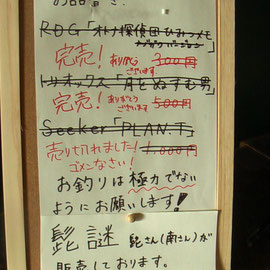 RDG「オトナ探偵団ひみつメモ
完売！ ありがとうございます 3000円
トリオックス「月とぬすむ男」
完売！ ありがとうございます 500円
Seeker「PLAN.T」
売り切れました！ 1,000円
ゴメンなさい！
お釣りは極力でない
ようにお願いします！
髭謎 髭さん(南さん)が
販売しております。